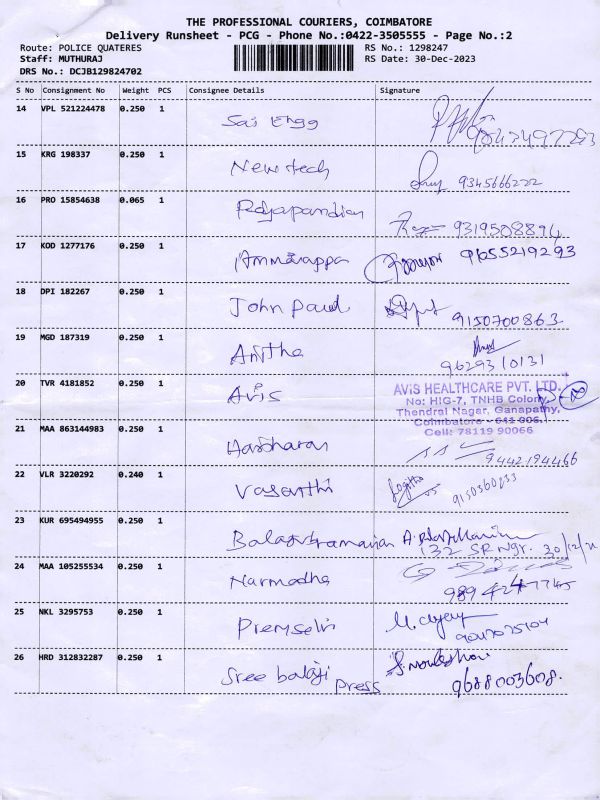 THE PROFESSIONAL COURIERS, COIMBATORE
Delivery Runsheet - PCG - Phone No.:0422-3505555 - Page No.:2
Route: POLICE QUATERES
Staff: MUTHURAJ
DRS No.: DCJB129824702
RS No.: 1298247
RS Date: 30-Dec-2023
S No Consignment No Weight PCS Consignee Details Signature
14 VPL 521224478 0.250 1 Sai Engg
15 KRG 198337 0.250 1 Newtech 9345666222
16 PRO 15854638 0.065 1 Rajapandian 9319508894
17 KOD 1277176 0.250 1 Ammarappa 9655219293
18 DPI 182267 0.250 1 John Paul 9150700863
19 MGD 187319 0.250 1 Anitha 9629310131
20 TVR 4181852 0.250 1 Avis
AVIS HEALTHCARE PVT. LTD.
No: HIG-7, TNHB Colony,
Thendral Nagar, Ganapathy,
Coimbatore - 641 006.
Cell: 78119 90066
21 MAA 863144983 0.250 1 Hariharan 9442194466
22 VLR 3220292 0.240 1 Vasanthi
23 KUR 695494955 0.250 1 Balasubramanian
132 SR Ngr.
24 MAA 105255534 0.250 1 Narmadha
25 NKL 3295753 0.250 1 Premselvi
26 HRD 312832287 0.250 1 Sree balaji press
9688003608.